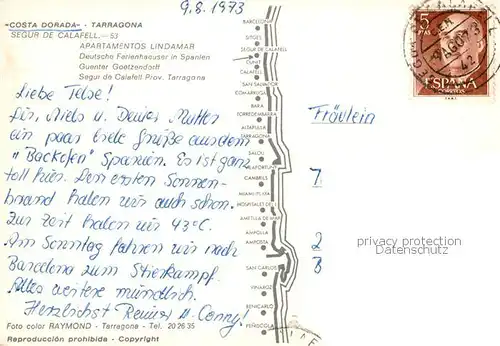 9.8.1973
-COSTA DORADA- - TARRAGONA
SEGUR DE CALAFELL.-53
APARTAMENTOS LINDAMAR
Deutsche Ferienhaeuser in Spanien
Guenter Goetzendorff
Segur de Calafell Prov. Tarragona
Liebe Telse!
Dir, Niels u. Deiner Mutter
ein paar liebe Grüße aus dem
"Backofen" Spanien. Es ist ganz
toll hier. Den ersten Sonnen-
brand haben wir auch schon.
Zur Zeit haben wir 43°C.
Am Sonntag fahren wir nach
Barcelona zum Stierkampf.
Alles weitere mündlich.
Herzlichst Reiner u. Conny!
Foto color RAYMOND - Tarragona - Tel. 20 26 35
Reproducción prohibida - Copyright
BARCELONA
SITGES
SEGUR DE CALAFELL
CUNIT
CALAFELL
SAN SALVADOR
COMARRUGA
BARA
TORREDEMBARRA
ALTAFULLA
TARRAGONA
SALOU
VILAFORTUNY
CAMBRILS
MIAMI PLAYA
HOSPITALET DE
AMETLLA DE MAR
AMPOLLA
AMPOSTA
SAN CARLOS
VINAROZ
BENICARLO
PEÑISCOLA
Fräulein
7
2
B
5
PTAS
ESPAÑA
CORREOS
AGO 73
privacy protection
Datenschutz